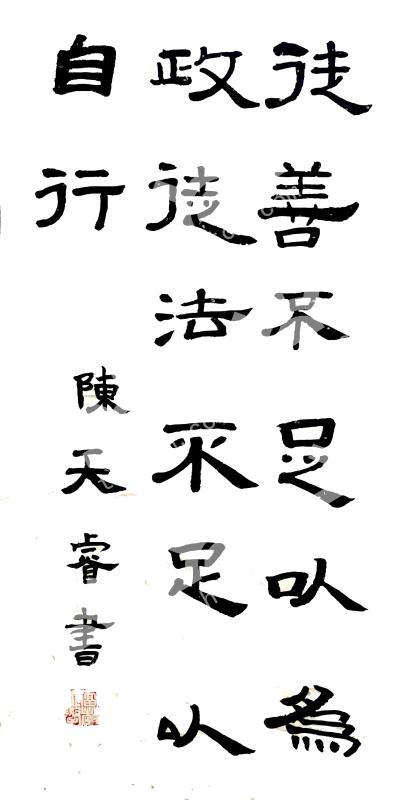 徒善不足以為
政徒法不足以
自行
陳天睿書